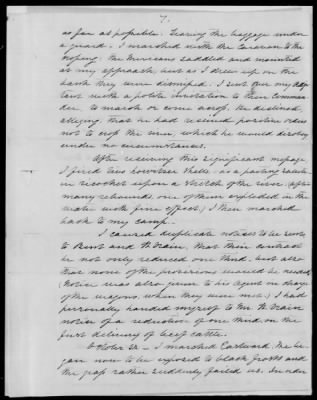 7.
as far as possible. Leaving the baggage under
a guard. I marched with the Caravan to the
crossing. The Mexicans saddled and mounted
at my approach, but as I drew up on the
bank they were dismissed. I sent over my Adju
tant with a polite invitation to their Comman
der to march or come across. He declined,
alleging that he had received positive orders
not to cross the river, which he would disobey
under no circumstances.
After receiving this significant message
I fired two howitzer shells as a parting salute
in ricochet upon a stretch of the river (after
many rebounds one of them exploded in the
water with fine effect.) I then marched
back to my camp.
I caused duplicate notices to be wrote
to Bent and St. Vrain, that their contract
be not only reduced one third, but also
that none of the provisions would be needed
(Notice was also given to his agent in charge
of the wagons when they were met.) I had
personally handed myself to Mr. St. Vrain
notice of a reduction of one third on the
first delivery of beef cattle.
October 5th I marched Eastward. We be
gan now to be exposed to black frosts and
the grass rather suddenly failed us. In